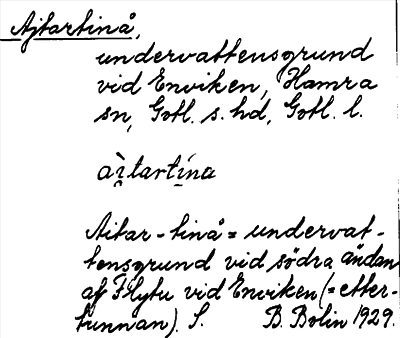 Ajtartinå,
undervattensgrund
vid Enviken, Hamra
sn, Gotl. s. hd, Gotl. l.
aìtartína
Aitar-tinå = undervat-
tensgrund vid södra ändan
af Flytu vid Enviken (= etter-
tunnan). S. B. Bolin 1929.